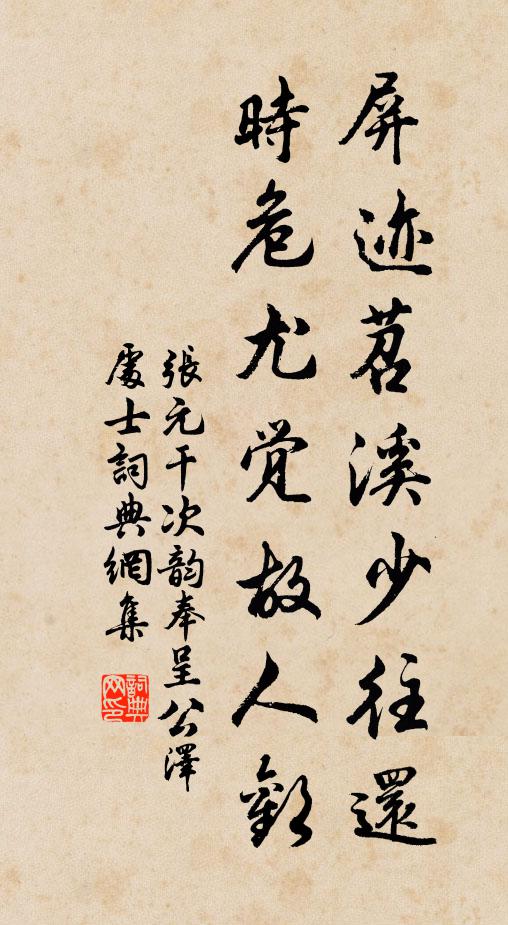 屏迹苕溪少往還
時危尤覚故人歡
張元干次韵奉呈公澤
處士詞典網集
詞典网印